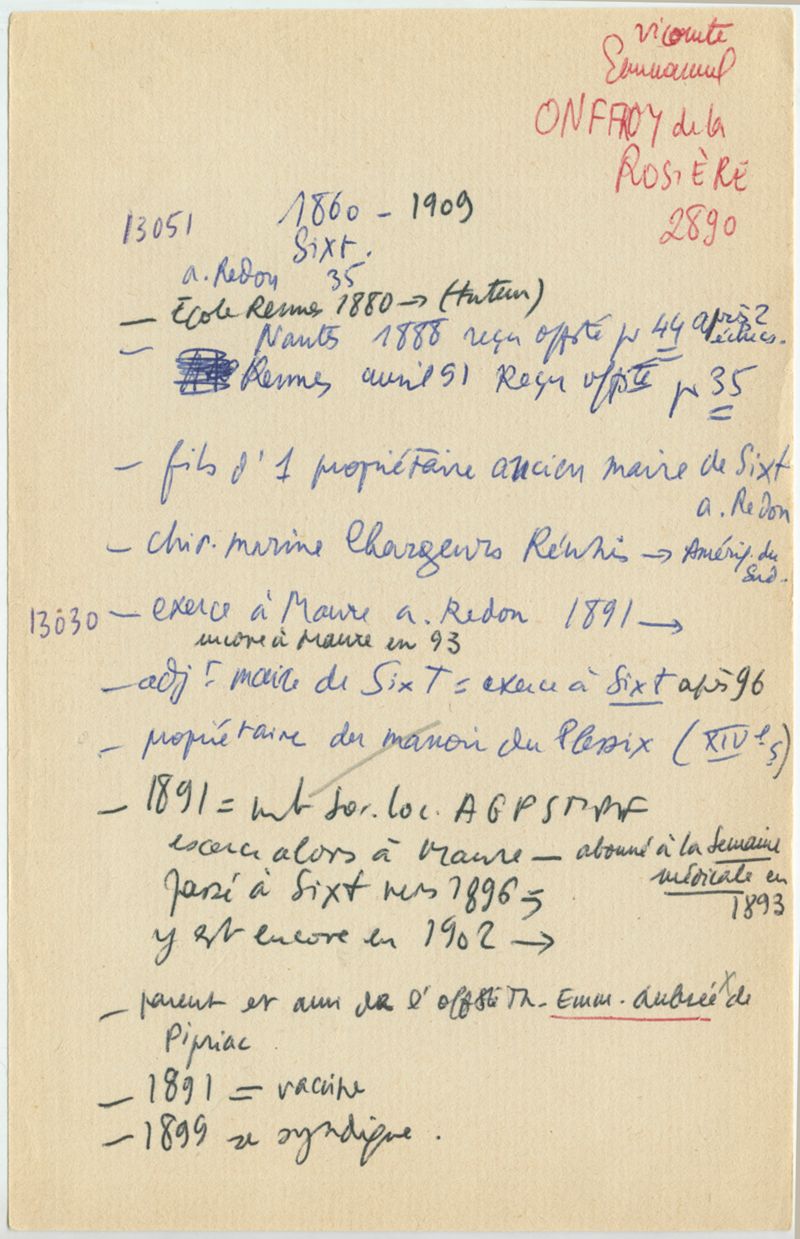 vicomte
Emmanuel
ONFFROY de la
ROSIÈRE
2890
13051 1860 - 1909
Sixt.
a. Redon 35
— École Rennes 1880 → (tuteur)
— Nantes 1888 reçu offté pr 44 après 2 échecs.
Rennes avril 91 Reçu offté pr 35
— fils d'1 propriétaire ancien maire de Sixt
a. Redon
— chir. marine Chargeurs Réunis → Amériq. du Sud.
13030 — exerce à Maure a. Redon 1891 →
encore à Maure en 93
— adjt maire de Sixt = exerce à Sixt après 96
— propriétaire du manoir du Plessix (XIVe s)
— 1891 = mb Soc. loc. AGPSMPF
exerce alors à Maure — abonné à la Semaine
médicale en
1893
passé à Sixt vers 1896 =
y est encore en 1902 →
— parent et ami de l'offté Th. Emm. Aubrée x de
Pipriac
— 1891 = vaccine
— 1899 se syndique.